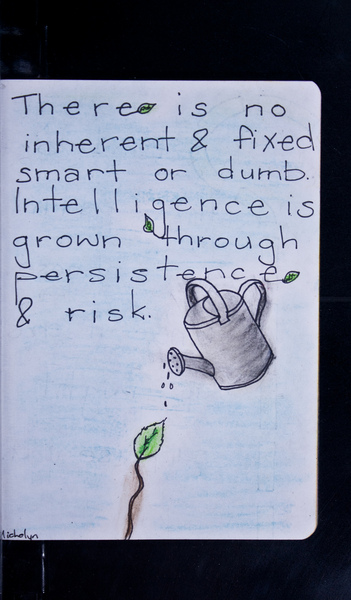 There is no
inherent & fixed
smart or dumb.
Intelligence is
grown through
persistence
& risk.